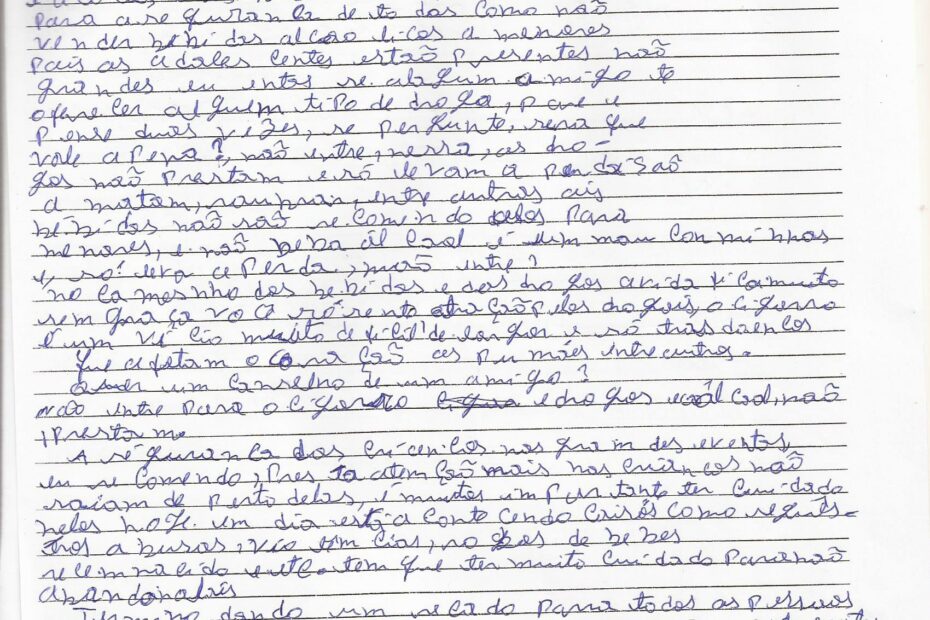 para a segurança de todos como não
vender bebidas alcao licos a menores
pais as adales centes estão presentes nos
grandes eventos se algum amigo te
oferecer alguem tipo de droga, pare e
pense duas vezes, se pergunte, sera que
vale a pena?, não entre, nessa, as dro-
gas não prestam e só levam a perda São
a matam, roubam, entre outros ais
bebidas não são recomendo pelos para
menores, e não beba álcool é um mau conminhos
e, só leva a perda, não entre?
no camesnho dos bebidas e das drogas a vida fica muito
sem graça você só sente atração pelas drogas, o cigarro
é um vício muito difícil de largar e só tras doenças
que afetam o coração as pumões entre outros.
Quer um conselho de um amigo?
não entre para o cigarro e drogas e álcool, não
prestam
A segurança dos cricenças nos grandes eventos,
eu recomendo, presta atenção mais nas crianças não
saiam de perto delas, é muitos importante ter cuidado
pelos hoje em dia está a conte cendo crisós como seques-
tros abusos, vio lencias, roubos de bebes
recemnacido e etc. tem que ter muito cuidado para não
abandonalas
Termino dando um recado para todos as pessoas